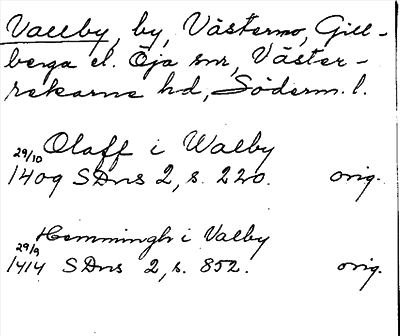 Vallby, by, Västermo, Gill-
berga el. Öja snr, Väster-
rekarne hd, Söderm. l.
Olaff i Walby
29/10 1409 SDns 2, s. 220. orig.
Hemmingh i Valby
29/9 1414 SDns 2, s. 852. orig.